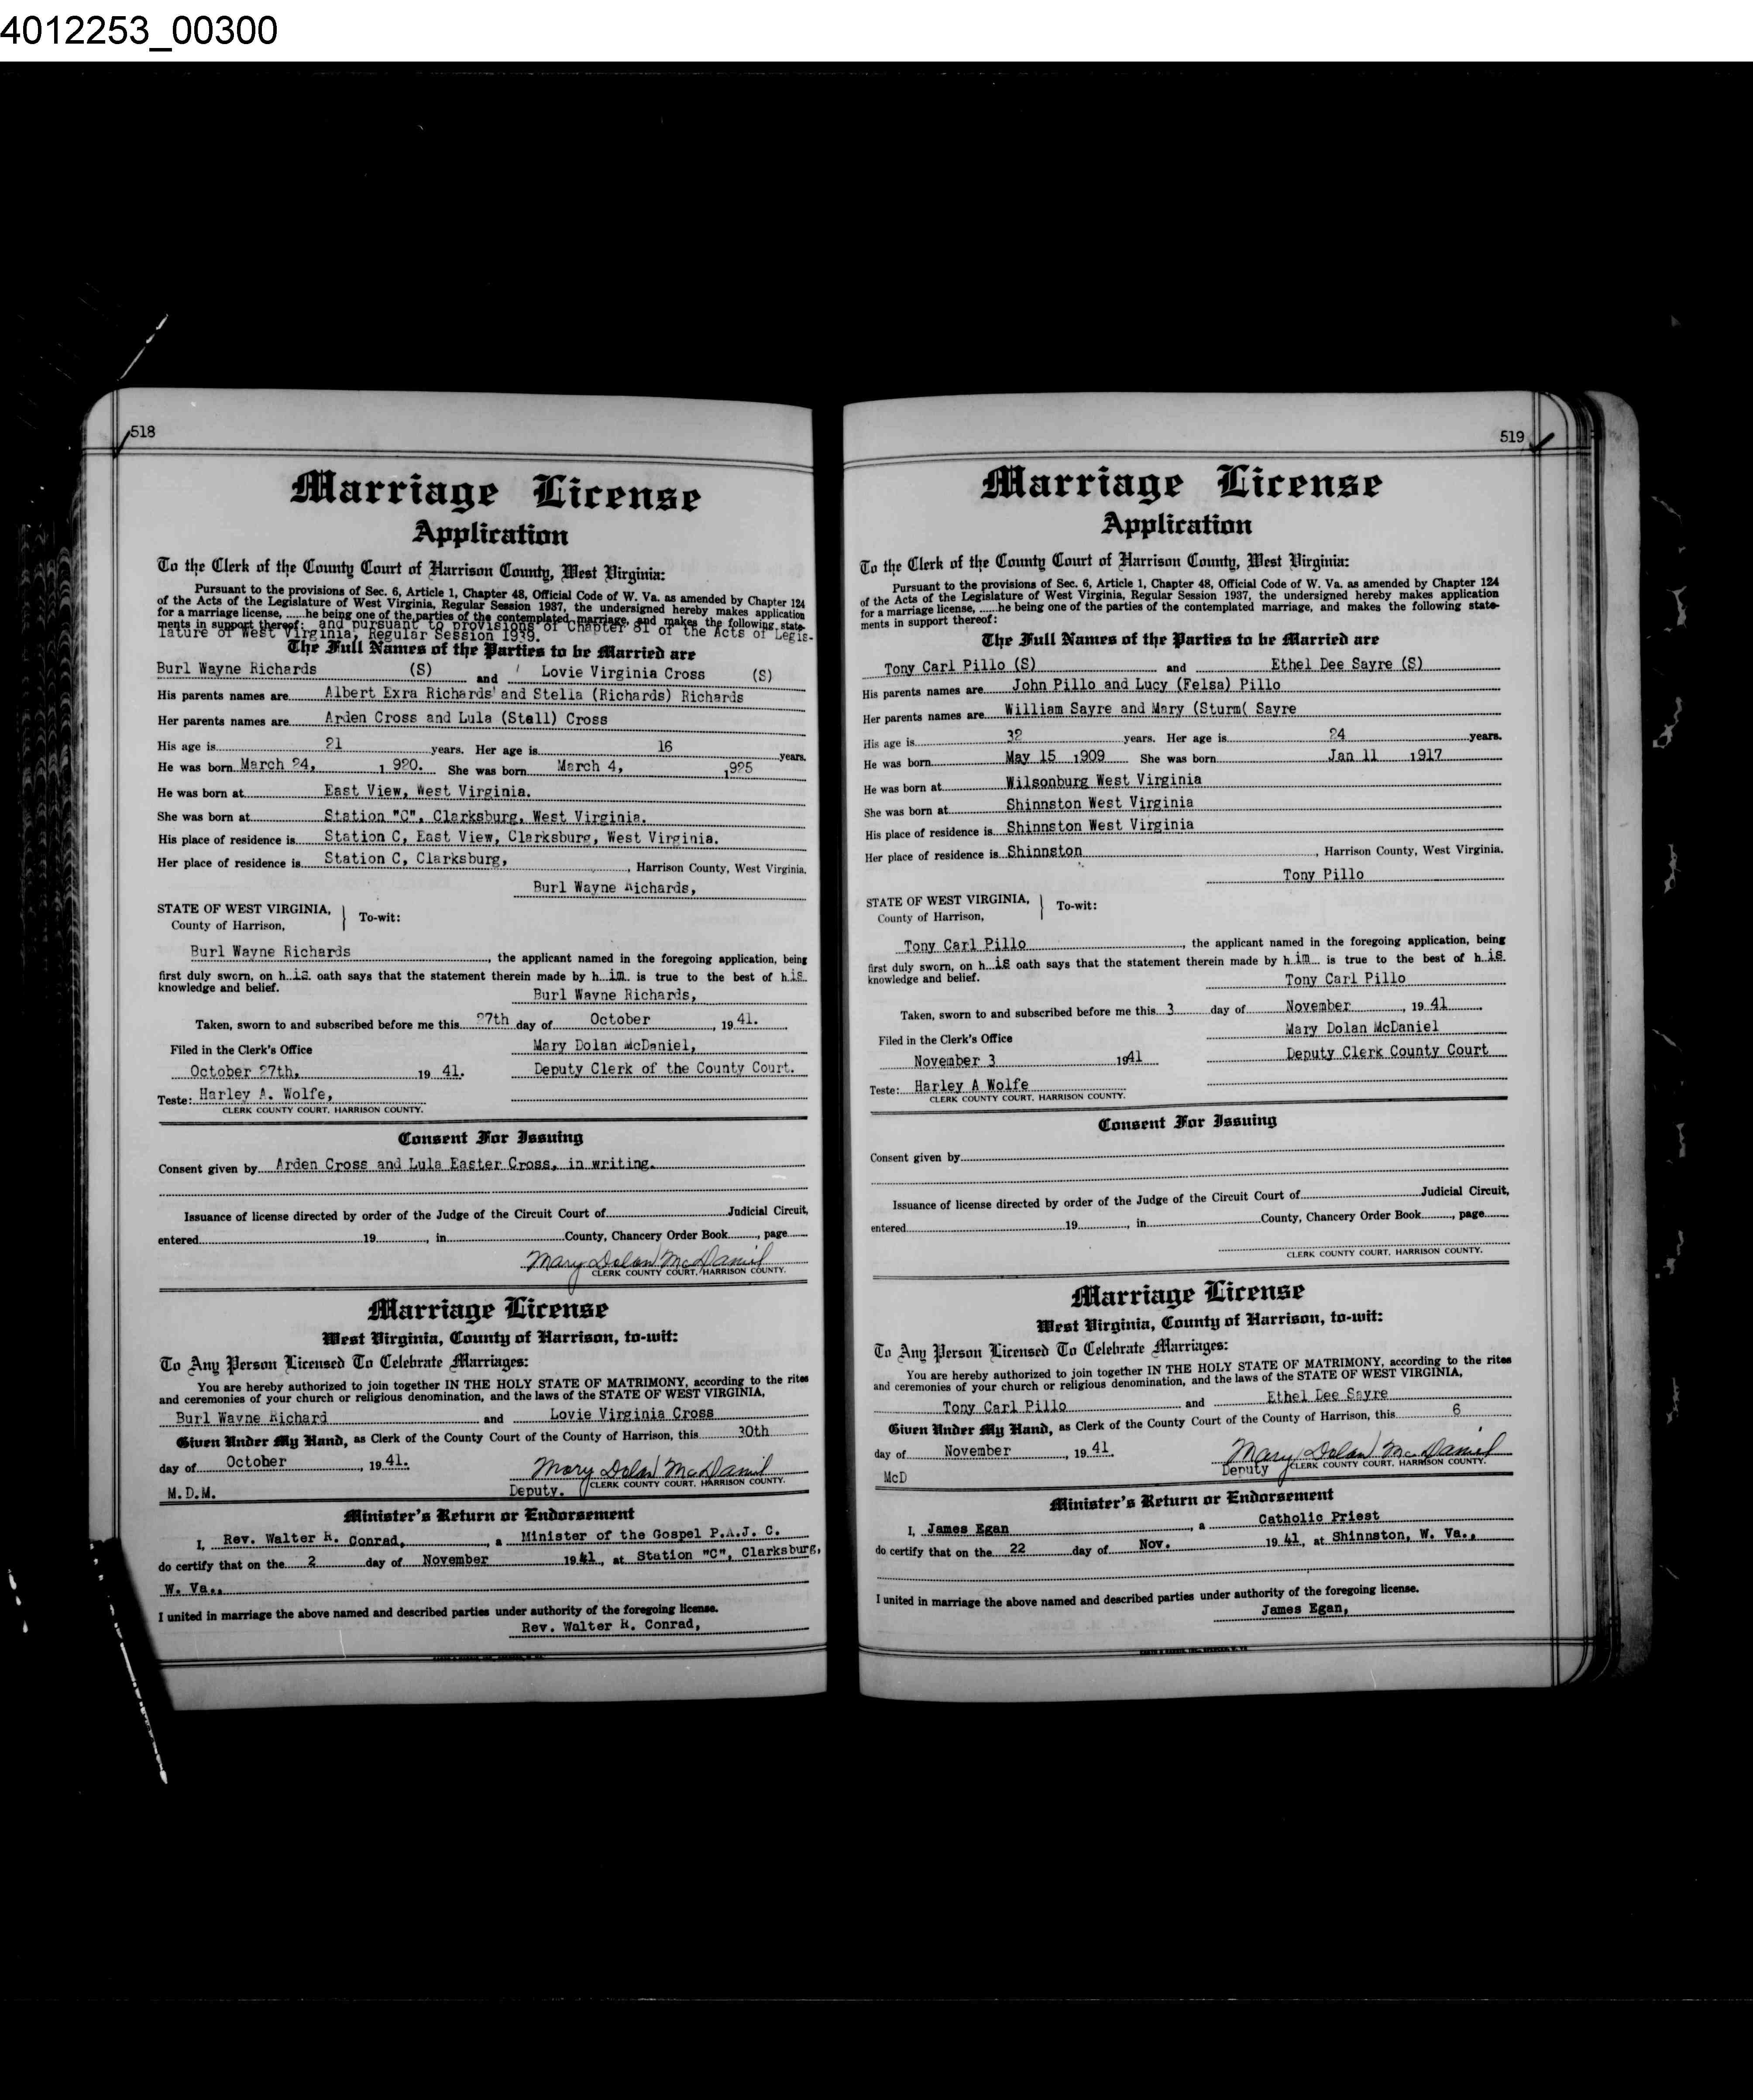 4012253_00300
518
Marriage License
Application
To the Clerk of the County Court of Harrison County, West Virginia:
Pursuant to the provisions of Sec. 6, Article 1, Chapter 48, Official Code of W. Va. as amended by Chapter 124
of the Acts of the Legislature of West Virginia, Regular Session 1937, the undersigned hereby makes application
for a marriage license, ......he being one of the parties of the contemplated marriage, and makes the following state-
ments in support thereof: and pursuant to provisions of Chapter 81 of the Acts of Legis-
lature of West Virginia, Regular Session 1939.
The Full Names of the Parties to be Married are
Burl Wayne Richards (S) and Lovie Virginia Cross (S)
His parents names are Albert Exra Richards' and Stella (Richards) Richards
Her parents names are Arden Cross and Lula (Stall) Cross
His age is 21 years. Her age is 16 years.
He was born March 24, 1920. She was born March 4, 1925
He was born at East View, West Virginia.
She was born at Station "C", Clarksburg, West Virginia.
His place of residence is Station C, East View, Clarksburg, West Virginia.
Her place of residence is Station C, Clarksburg, , Harrison County, West Virginia.
Burl Wayne Richards,
STATE OF WEST VIRGINIA,
County of Harrison, To-wit:
Burl Wayne Richards , the applicant named in the foregoing application, being
first duly sworn, on h is oath says that the statement therein made by h im is true to the best of h is
knowledge and belief.
Burl Wayne Richards,
Taken, sworn to and subscribed before me this 27th day of October , 19 41.
Filed in the Clerk's Office Mary Dolan McDaniel,
October 27th, 19 41. Deputy Clerk of the County Court.
Teste: Harley A. Wolfe,
CLERK COUNTY COURT, HARRISON COUNTY.
Consent For Issuing
Consent given by Arden Cross and Lula Easter Cross, in writing.
Issuance of license directed by order of the Judge of the Circuit Court of Judicial Circuit,
entered 19 , in County, Chancery Order Book , page
Mary Dolan McDaniel
CLERK COUNTY COURT, HARRISON COUNTY.
Marriage License
West Virginia, County of Harrison, to-wit:
To Any Person Licensed To Celebrate Marriages:
You are hereby authorized to join together IN THE HOLY STATE OF MATRIMONY, according to the rites
and ceremonies of your church or religious denomination, and the laws of the STATE OF WEST VIRGINIA,
Burl Wayne Richard and Lovie Virginia Cross
Given Under My Hand, as Clerk of the County Court of the County of Harrison, this 30th
day of October , 19 41.
Mary Dolan McDaniel
M.D.M. Deputy. CLERK COUNTY COURT, HARRISON COUNTY.
Minister's Return or Endorsement
I, Rev. Walter R. Conrad, , a Minister of the Gospel P.A.J. C.
do certify that on the 2 day of November 19 41, at Station "C", Clarksburg,
W. Va.,
I united in marriage the above named and described parties under authority of the foregoing license.
Rev. Walter R. Conrad,
519
Marriage License
Application
To the Clerk of the County Court of Harrison County, West Virginia:
Pursuant to the provisions of Sec. 6, Article 1, Chapter 48, Official Code of W. Va. as amended by Chapter 124
of the Acts of the Legislature of West Virginia, Regular Session 1937, the undersigned hereby makes application
for a marriage license, ......he being one of the parties of the contemplated marriage, and makes the following state-
ments in support thereof:
The Full Names of the Parties to be Married are
Tony Carl Pillo (S) and Ethel Dee Sayre (S)
His parents names are John Pillo and Lucy (Felsa) Pillo
Her parents names are William Sayre and Mary (Sturm( Sayre
His age is 32 years. Her age is 24 years.
He was born May 15 1909 She was born Jan 11 1917
He was born at Wilsonburg West Virginia
She was born at Shinnston West Virginia
His place of residence is Shinnston West Virginia
Her place of residence is Shinnston , Harrison County, West Virginia.
Tony Pillo
STATE OF WEST VIRGINIA,
County of Harrison, To-wit:
Tony Carl Pillo , the applicant named in the foregoing application, being
first duly sworn, on h is oath says that the statement therein made by h im is true to the best of h is
knowledge and belief.
Tony Carl Pillo
Taken, sworn to and subscribed before me this 3 day of November , 19 41
Filed in the Clerk's Office Mary Dolan McDaniel
November 3 1941 Deputy Clerk County Court
Teste: Harley A Wolfe
CLERK COUNTY COURT, HARRISON COUNTY.
Consent For Issuing
Consent given by
Issuance of license directed by order of the Judge of the Circuit Court of Judicial Circuit,
entered 19 , in County, Chancery Order Book , page
CLERK COUNTY COURT, HARRISON COUNTY.
Marriage License
West Virginia, County of Harrison, to-wit:
To Any Person Licensed To Celebrate Marriages:
You are hereby authorized to join together IN THE HOLY STATE OF MATRIMONY, according to the rites
and ceremonies of your church or religious denomination, and the laws of the STATE OF WEST VIRGINIA,
Tony Carl Pillo and Ethel Dee Sayre
Given Under My Hand, as Clerk of the County Court of the County of Harrison, this 6
day of November , 19 41
Mary Dolan McDaniel
McD Deputy CLERK COUNTY COURT, HARRISON COUNTY.
Minister's Return or Endorsement
I, James Egan , a Catholic Priest
do certify that on the 22 day of Nov. 19 41, at Shinnston, W. Va.,
I united in marriage the above named and described parties under authority of the foregoing license.
James Egan,